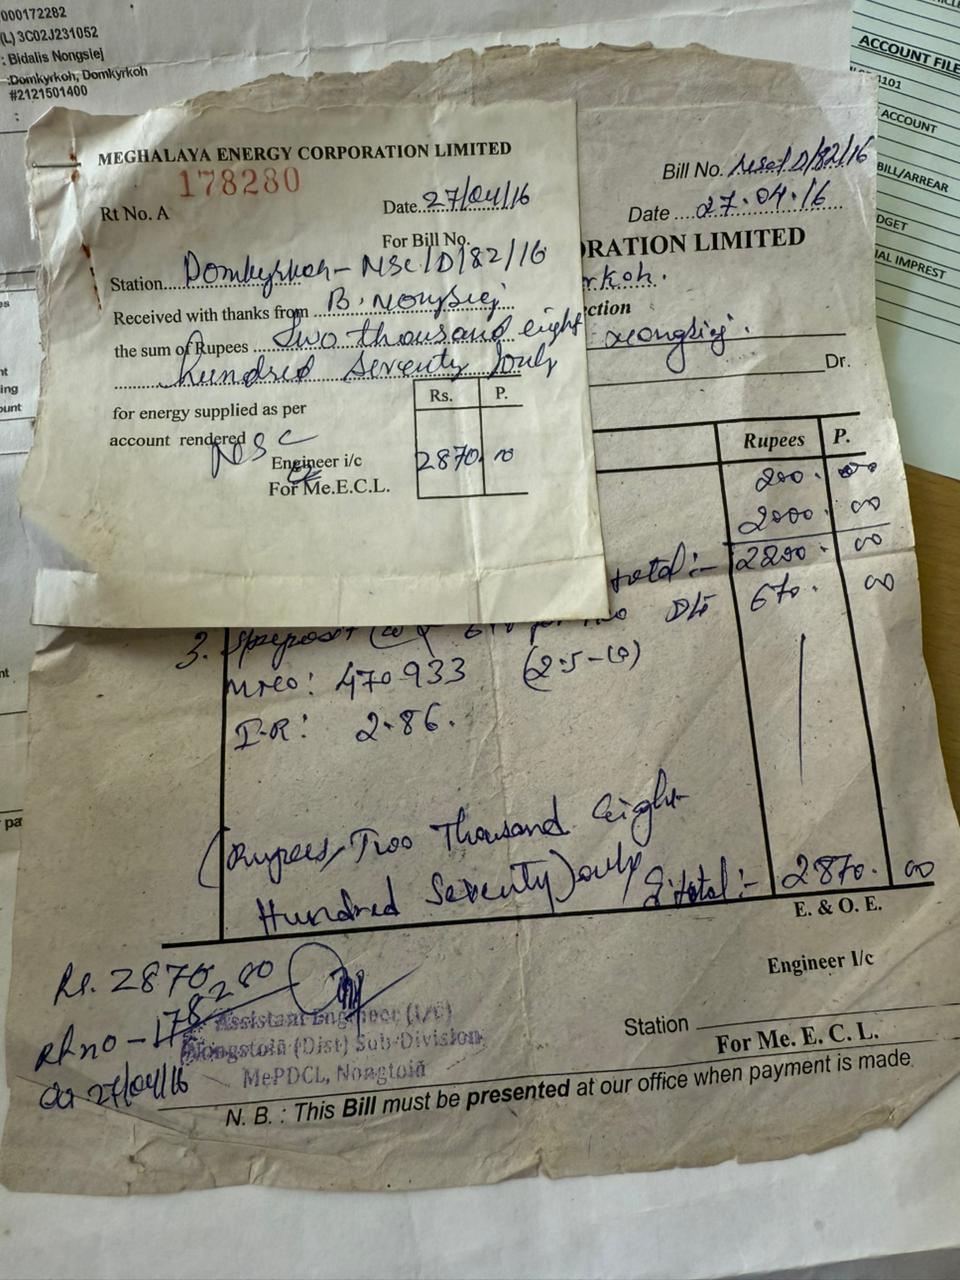 000172282
(L) 3C02J231052
: Bidalis Nongsiej
:Domkyrkoh, Domkyrkoh
#2121501400
:
ACCOUNT FILE
1101
ACCOUNT
BILL/ARREAR
DGET
IAL IMPREST
MEGHALAYA ENERGY CORPORATION LIMITED
178280
Rt No. A
Date 27/04/16
For Bill No.
Station Domkyrkoh - NSC/D/82/16
Received with thanks from B. Nongsiej
the sum of Rupees Two thousand eight
hundred Seventy only
for energy supplied as per
account rendered
NSC
Rs. P.
Engineer i/c
2870
For Me.E.C.L.
Bill No. NSC/D/82/16
Date 27.04.16
ORATION LIMITED
rkoh.
ction
Nongsiej.
Dr.
Rupees P.
200. 00
2000. 00
total :- 2200. 00
670. 00
3.
M.No: 470933 (2.5-10)
I.R: 2.86.
(Rupees Two Thousand Eight
Hundred Seventy) only
G.total :- 2870. 00
E. & O. E.
Engineer I/c
Rs. 2870
Rt no - 178280
Dt 27/04/16
Assistant Engineer (I/C)
Nongstoiñ (Dist) Sub-Division
MePDCL, Nongtoiñ
Station
For Me. E. C. L.
N. B. : This Bill must be presented at our office when payment is made